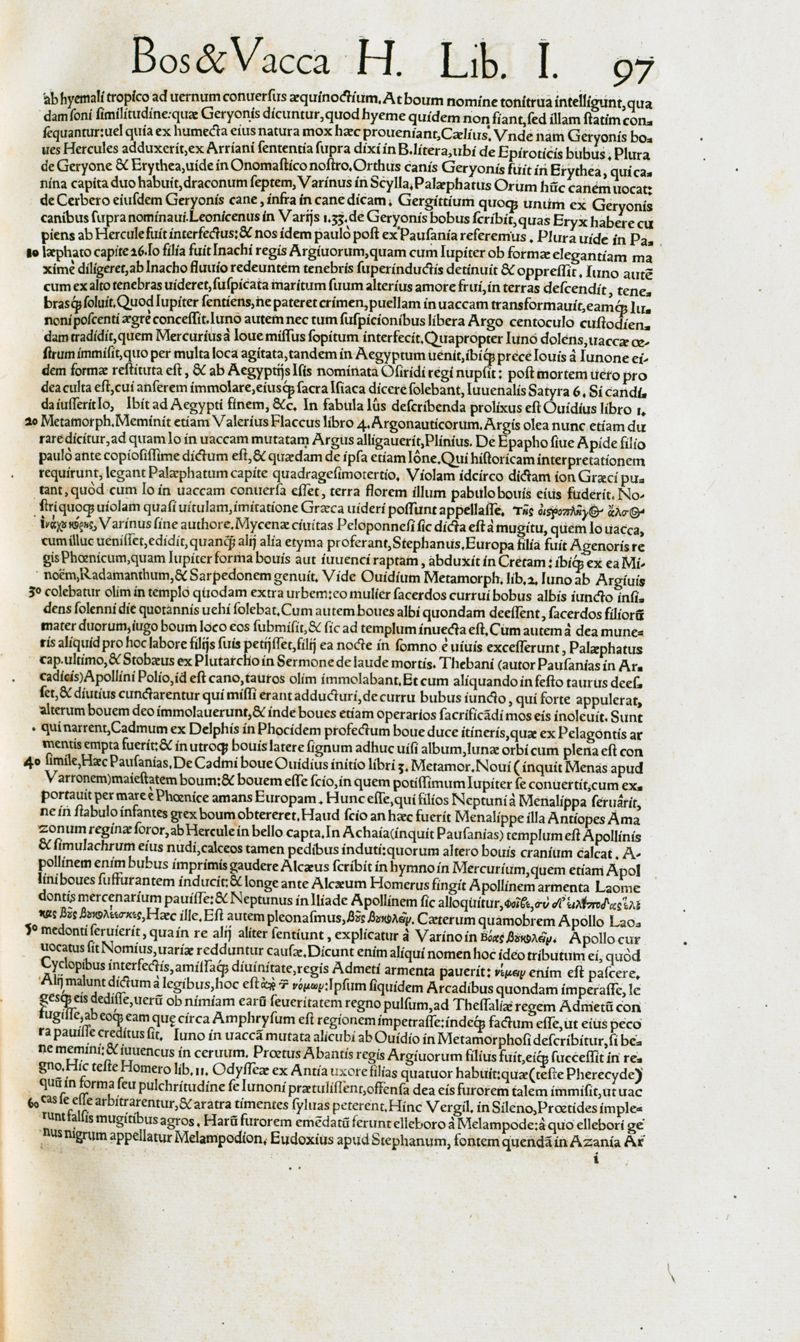 Bos & Vacca H. Lib. I. 97
ab hyemali tropico ad uernum conuersus æquinoctium. At boum nomine tonitrua intelligunt, qua
dam soni similitudine: quæ Geryonis dicuntur, quod hyeme quidem non fiant, sed illam statim con-
sequantur: uel quia ex humecta eius natura mox hæc proueniant, Cælius. Vnde nam Geryonis bo-
ues Hercules adduxerit, ex Arriani sententia supra dixi in B. litera, ubi de Epiroticis bubus. Plura
de Geryone & Erythea, uide in Onomastico nostro. Orthus canis Geryonis fuit in Erythea, qui ca-
nina capita duo habuit, draconum septem, Varinus in Scylla. Palæphatus Orum hũc canem uocat:
de Cerbero eiusdem Geryonis cane, infra in cane dicam. Gergittium quoqꝫ unum ex Geryonis
canibus supra nominaui. Leonicenus in Varijs 1.33. de Geryonis bobus scribit, quas Eryx habere cu
piens ab Hercule fuit interfectus: & nos idem paulò post ex Pausania referemus. Plura uide in Pa-
10 læphato capite 26. Io filia fuit Inachi regis Argiuorum, quam cum Iupiter ob formæ elegantiam ma
ximè diligeret, ab Inacho fluuio redeuntem tenebris superinductis detinuit & oppressit. Iuno autẽ
cum ex alto tenebras uideret, suspicata maritum suum alterius amore frui, in terras descendit, tene-
brasqꝫ soluit. Quod Iupiter sentiens, ne pateret crimen, puellam in uaccam transformauit, eamqꝫ Iu-
noni poscenti ægrè concessit. Iuno autem nec tum suspicionibus libera Argo centoculo custodien-
dam tradidit, quem Mercurius à Ioue missus sopitum interfecit. Quapropter Iuno dolens, uaccæ œ-
strum immisit, quo per multa loca agitata, tandem in Aegyptum uenit, ibiqꝫ prece Iouis à Iunone ei-
dem formæ restituta est, & ab Aegyptijs Isis nominata Osiridi regi nupsit: post mortem uero pro
dea culta est, cui anserem immolare, eiusqꝫ sacra Isiaca dicere solebant, Iuuenalis Satyra 6. Si candi-
da iusserit Io, Ibit ad Aegypti finem, &c. In fabula Iûs describenda prolixus est Ouidius libro 1.
20 Metamorph. Meminit etiam Valerius Flaccus libro 4. Argonauticorum. Argis olea nunc etiam du
rare dicitur, ad quam Io in uaccam mutatam Argus alligauerit, Plinius. De Epapho siue Apide filio
paulò ante copiosissime dictum est, & quædam de ipsa etiam Iône. Qui historicam interpretationem
requirunt, legant Palæphatum capite quadragesimotertio. Violam idcirco dictam ion Græci pu-
tant, quòd cum Io in uaccam conuersa esset, terra florem illum pabulo bouis eius fuderit. No-
stri quoqꝫ uiolam quasi uitulam, imitatione Græca uideri possunt appellasse. Τῆς οἰστροπλῆγος ἄλσος
ἰνάχου κόρης, Varinus sine authore. Mycenæ ciuitas Peloponnesi sic dicta est à mugitu, quem Io uacca,
cum illuc uenisset, edidit, quanqꝫ alij alia etyma proferant, Stephanus. Europa filia fuit Agenoris re
gis Phœnicum, quam Iupiter forma bouis aut iuuenci raptam, abduxit in Cretam: ibiqꝫ ex ea Mi-
noëm, Radamanthum, & Sarpedonem genuit. Vide Ouidium Metamorph. lib. 2. Iuno ab Argiuis
30 colebatur olim in templo quodam extra urbem: eo mulier sacerdos currui bobus albis iuncto insi-
dens solenni die quotannis uehi solebat. Cum autem boues albi quondam deessent, sacerdos filiorũ
mater duorum, iugo boum loco eos submisit, & sic ad templum inuecta est. Cum autem à dea mune-
ris aliquid pro hoc labore filijs suis petijsset, filij ea nocte in somno è uiuis excesserunt, Palæphatus
cap. ultimo, & Stobæus ex Plutarcho in Sermone de laude mortis. Thebani (autor Pausanias in Ar-
cadicis) Apollini Polio, id est cano, tauros olim immolabant. Et cum aliquando in festo taurus dees-
set, & diutius cunctarentur qui missi erant adducturi, de curru bubus iuncto, qui forte appulerat,
alterum bouem deo immolauerunt, & inde boues etiam operarios sacrificãdi mos eis inoleuit. Sunt
qui narrent, Cadmum ex Delphis in Phocidem profectum boue duce itineris, quæ ex Pelagontis ar
mentis empta fuerit: & in utroqꝫ bouis latere signum adhuc uisi album, lunæ orbi cum plena est con
40 simile, Hæc Pausanias. De Cadmi boue Ouidius initio libri 3. Metamor. Noui (inquit Menas apud
Varronem) maiestatem boum: & bouem esse scio, in quem potissimum Iupiter se conuertit, cum ex-
portauit per mare è Phœnice amans Europam. Hunc esse, qui filios Neptuni à Menalippa seruârit,
ne in stabulo infantes grex boum obtereret. Haud scio an hæc fuerit Menalippe illa Antiopes Ama
zonum reginæ soror, ab Hercule in bello capta. In Achaia (inquit Pausanias) templum est Apollinis
& simulachrum eius nudi, calceos tamen pedibus induti: quorum altero bouis cranium calcat. A-
pollinem enim bubus imprimis gaudere Alcæus scribit in hymno in Mercurium, quem etiam Apol
lini boues suffurantem inducit: & longe ante Alcæum Homerus fingit Apollinem armenta Laome
dontis mercenarium pauisse: & Neptunus in Iliade Apollinem sic alloquitur, Φοῖβε, σὺ δ' εἰλίποδας ἕλι
κας βοῦς βουκολέεσκες, Hæc ille. Est autem pleonasmus, βοῦς βουκολεῖν. Cæterum quamobrem Apollo Lao-
50 medonti seruierit, qua in re alij aliter sentiunt, explicatur à Varino in Βόας βουκολεῖν. Apollo cur
uocatus sit Nomius, uariæ redduntur causæ. Dicunt enim aliqui nomen hoc ideo tributum ei, quòd
Cyclopibus interfectis, amissaqꝫ diuinitate, regis Admeti armenta pauerit: νέμειν enim est pascere.
Alij malunt dictum à legibus, hoc est ἀπὸ τ̃ νόμων: Ipsum siquidem Arcadibus quondam imperasse, le
gesqꝫ eis dedisse, uerũ ob nimiam earũ seueritatem regno pulsum, ad Thessaliæ regem Admetũ con
fugisse, ab eoqꝫ eam quę circa Amphrysum est regionem impetrasse: indeqꝫ factum esse, ut eius peco
ra pauisse creditus sit. Iuno in uaccã mutata alicubi ab Ouidio in Metamorphosi describitur, si be-
ne memini: & iuuencus in ceruum. Prœtus Abantis regis Argiuorum filius fuit, eiqꝫ successit in re-
gno. Hic teste Homero lib. 11. Odysseæ ex Antia uxore filias quatuor habuit: quæ (teste Pherecyde)
quũ in forma seu pulchritudine se Iunoni prætulissent, offensa dea eis furorem talem immisit, ut uac
60 cas se esse arbitrarentur, & aratra timentes syluas peterent. Hinc Vergil. in Sileno, Prœtides imple-
runt falsis mugitibus agros. Harũ furorem emẽdatũ ferunt elleboro à Melampode: à quo ellebori ge
nus nigrum appellatur Melampodion. Eudoxius apud Stephanum, fontem quendã in Azania Ar
i